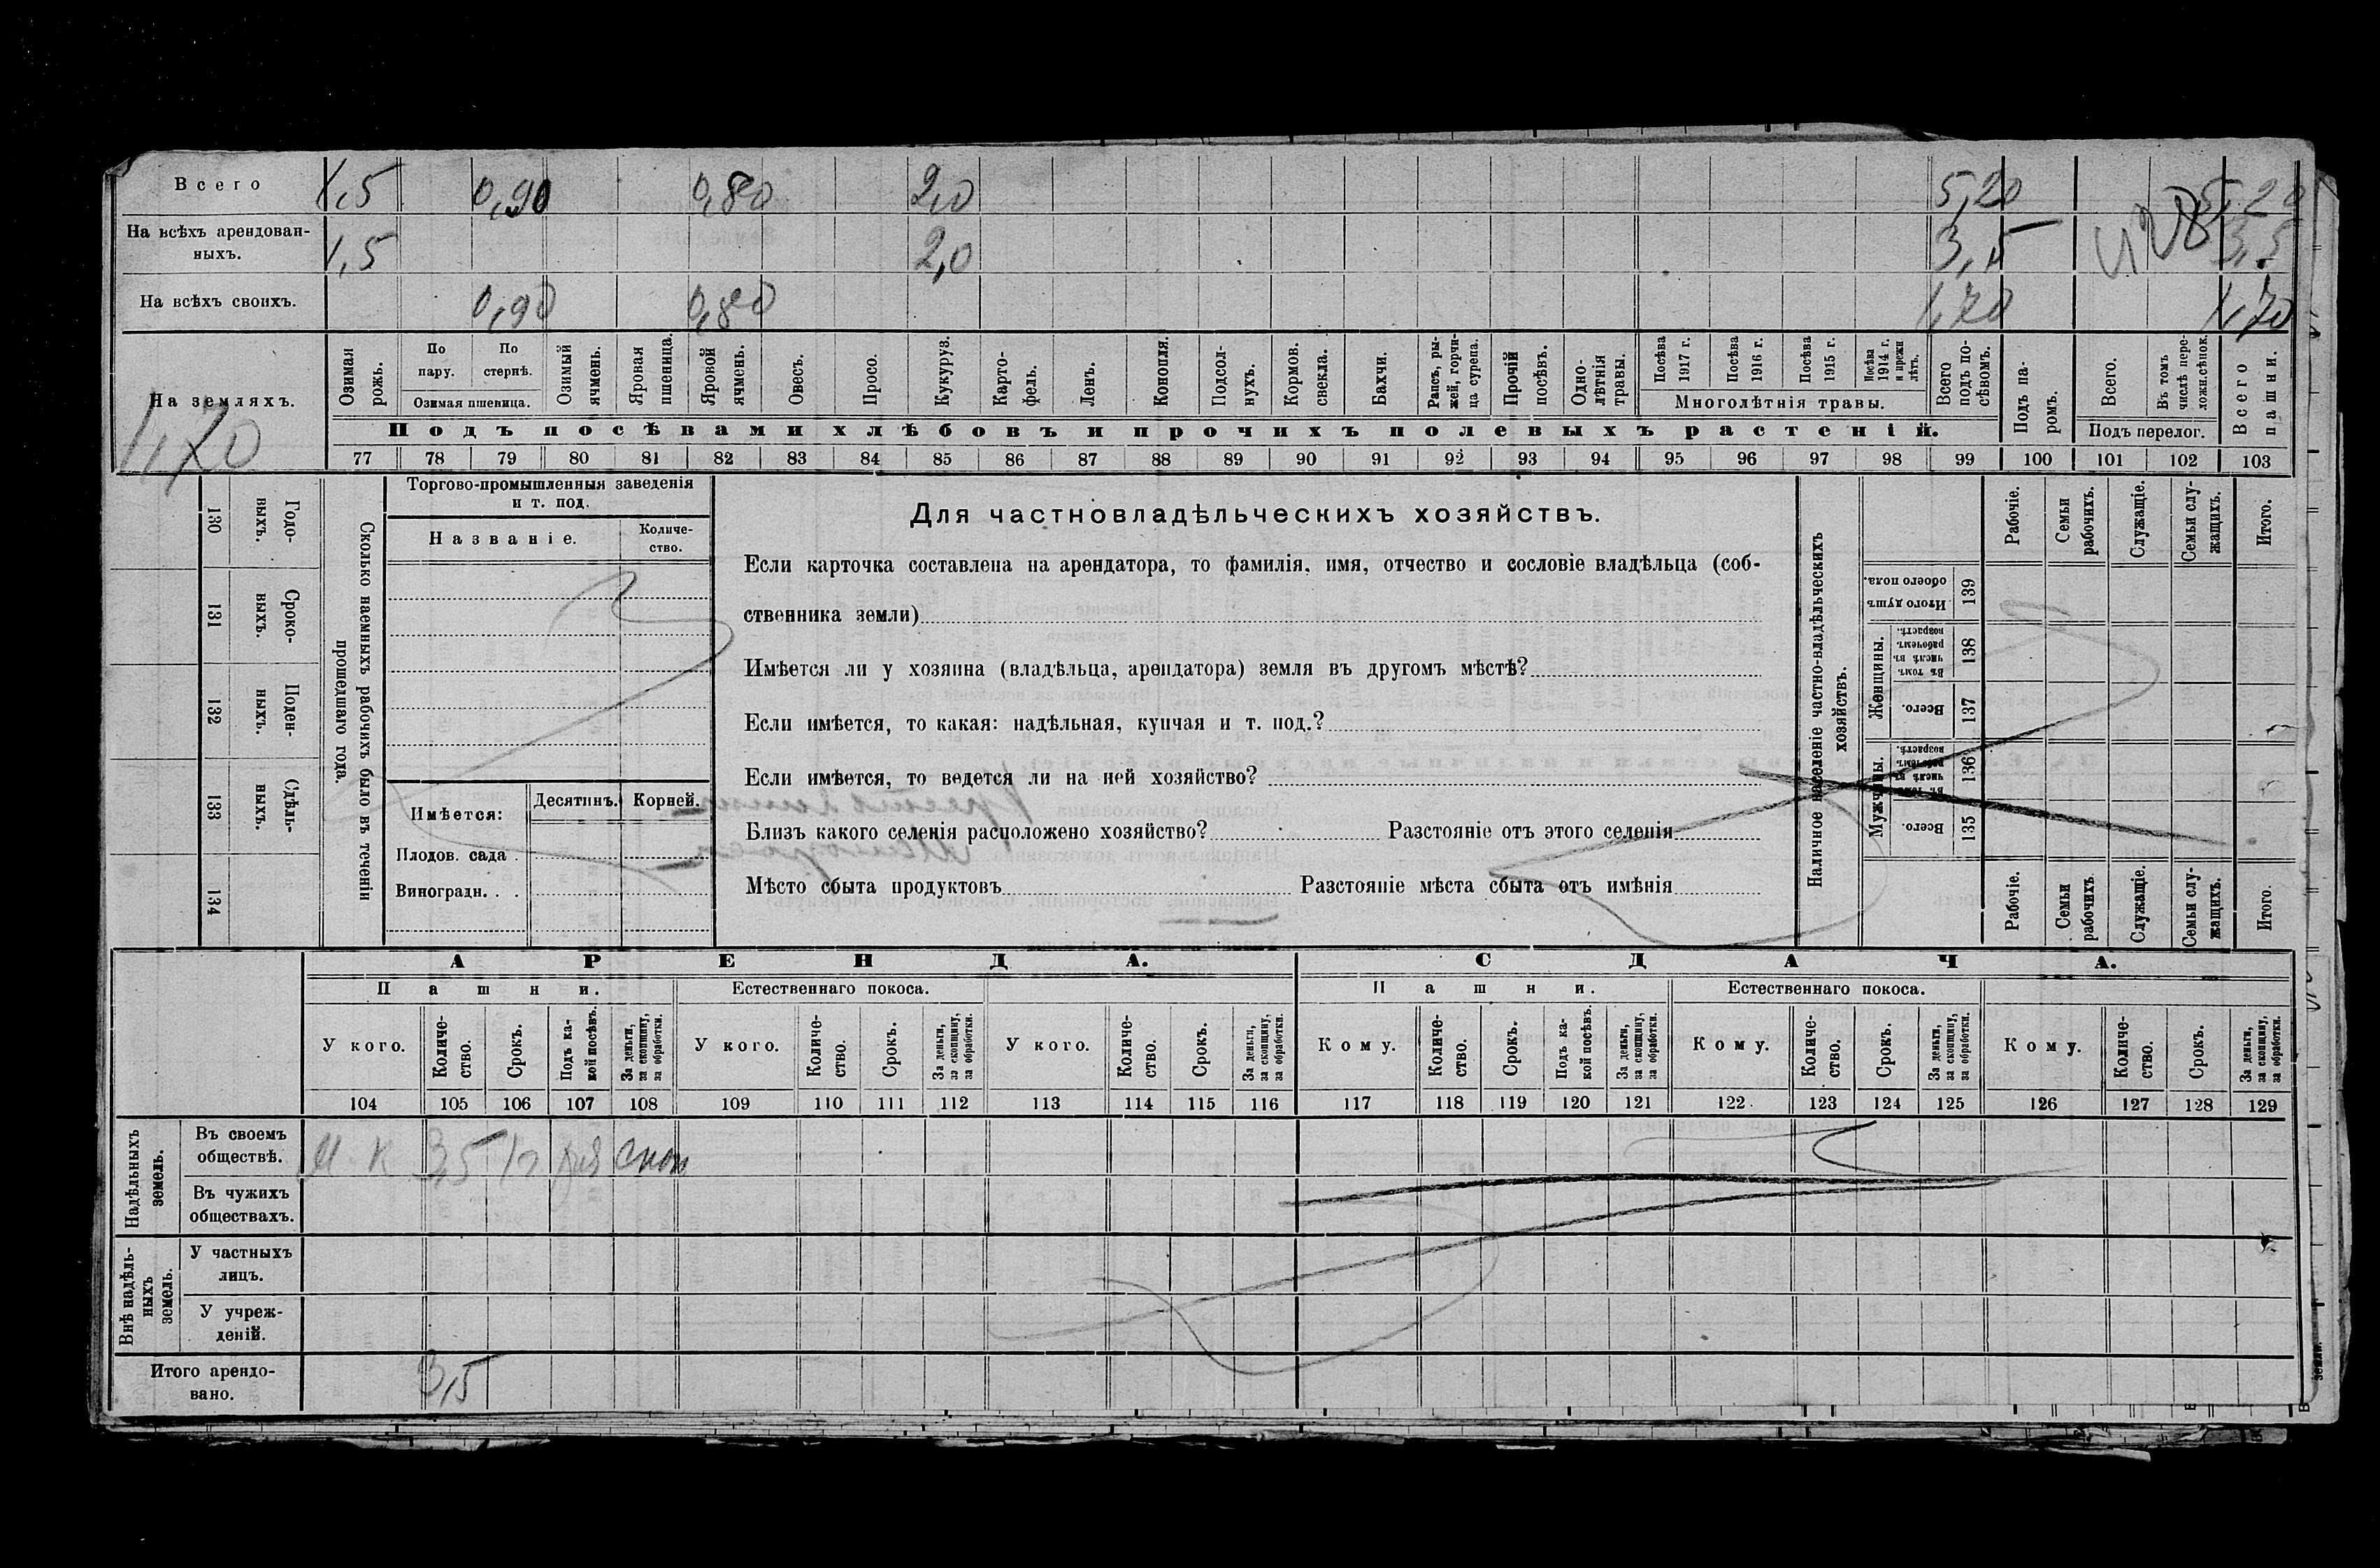 Всего 1,5 0,90 0,80 2,0 5,20 5,20
На всѣхъ арендован-
ныхъ. 1,5 2,0 3,5 3,5
На всѣхъ своихъ. 0,90 0,80 1,70 1,70
На земляхъ.
1,70
Озимая рожь.
По пару.
По стернѣ.
Озимая пшеница.
Озимый ячмень.
Яровая пшеница.
Яровой ячмень.
Овесъ.
Просо.
Кукуруз.
Карто-
фель.
Ленъ.
Конопля.
Подсол-
нухъ.
Кормов. свекла.
Бахчи.
Рапсъ, ры-
жей, горчи-
ца сурепа.
Прочій посѣвъ.
Одно-
лѣтнія травы.
Посѣва 1917 г.
Посѣва 1916 г.
Посѣва 1915 г.
Посѣва 1914 г. и прежн лѣтъ.
Многолѣтнія травы.
Всего подъ по-
сѣвомъ.
Подъ па-
ромъ.
Всего.
Въ томъ числѣ пере-
ложн.сѣнок.
Подъ перелог.
Всего пашни.
Подъ посѣвами хлѣбовъ и прочихъ полевыхъ растеній.
77 78 79 80 81 82 83 84 85 86 87 88 89 90 91 92 93 94 95 96 97 98 99 100 101 102 103
Сколько наемныхъ рабочихъ было въ теченіи
прошедшаго года.
Годо-
выхъ.
130
Сроко-
выхъ.
131
Поден-
ныхъ.
132
Сдѣль-
ныхъ.
133
134
Торгово-промышленныя заведенія
и т. под.
Названіе.
Количе-
ство.
Имѣется:
Десятинъ.
Корней.
Плодов. сада .
Виноградн. . .
Для частновладѣльческихъ хозяйствъ.
Если карточка составлена на арендатора, то фамилія, имя, отчество и сословіе владѣльца (соб-
ственника земли)
Имѣется ли у хозяина (владѣльца, арендатора) земля въ другомъ мѣстѣ?
Если имѣется, то какая: надѣльная, купчая и т. под.?
Если имѣется, то ведется ли на ней хозяйство?
Близъ какого селенія расположено хозяйство? Разстояніе отъ этого селенія
Мѣсто сбыта продуктовъ Разстояніе мѣста сбыта отъ имѣнія
Наличное населеніе частно-владѣльческихъ
хозяйствъ.
Рабочіе.
Семьи рабочихъ.
Служащіе.
Семьи слу-
жащихъ.
Итого.
Итого душъ обоего пола.
139
Женщины.
Въ томъ числѣ въ рабочемъ возрастѣ.
138
Всего.
137
Мужчины.
Въ томъ числѣ въ рабочемъ возрастѣ.
136
Всего.
135
Рабочіе.
Семьи рабочихъ
Служащіе.
Семьи слу-
жащихъ.
Итого.
АРЕНДА. СДАЧА.
Пашни. Естественнаго покоса. Пашни. Естественнаго покоса.
У кого.
Количе-
ство.
Срокъ.
Подъ ка-
кой посѣвъ.
За деньги,
за скопщину,
за обработки.
У кого.
Количе-
ство.
Срокъ.
За деньги,
за скопщину,
за обработки.
У кого.
Количе-
ство.
Срокъ.
За деньги,
за скопщину,
за обработки.
Кому.
Количе-
ство.
Срокъ.
Подъ ка-
кой посѣвъ.
За деньги,
за скопщину,
за обработки.
Кому.
Количе-
ство.
Срокъ.
За деньги,
за скопщину,
за обработки.
Кому.
Количе-
ство.
Срокъ.
За деньги,
за скопщину,
за обработки.
104 105 106 107 108 109 110 111 112 113 114 115 116 117 118 119 120 121 122 123 124 125 126 127 128 129
Надѣльныхъ
земель.
Въ своемъ
обществѣ. 3,5 скоп
Въ чужихъ
обществахъ.
Внѣ надѣль-
ныхъ
земель.
У частныхъ
лицъ.
У учреж-
деній.
Итого арендо-
вано. 3,5